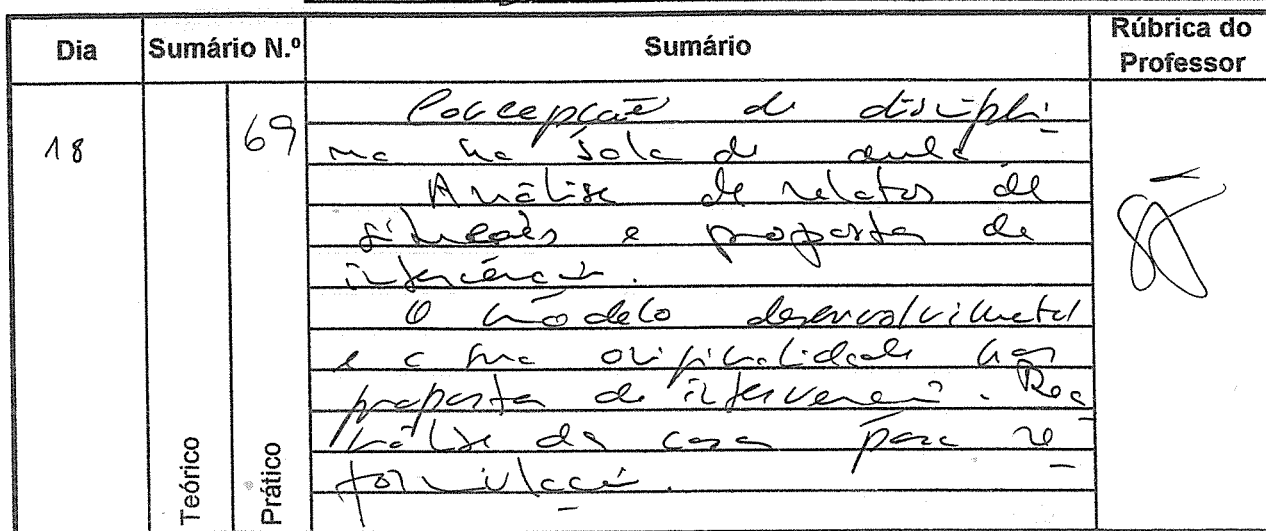 Dia Sumário N.º Sumário Rúbrica do Professor
18 69 Concepção de discipli-
na na sala de aula.
Análise de relatos de
situações e propostas de
intervenção.
O modelo desenvolvimental
e a sua originalidade nas
propostas de intervenção. Rea-
nálise de casos para re-
formulação.
Teórico Prático